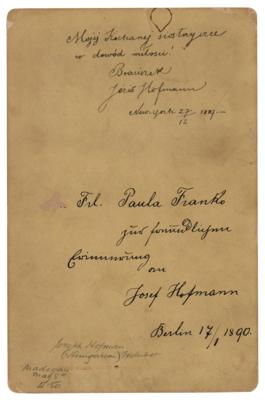 Mojej Kochanej siostryczce
w dowód miłości!
Braciszek
Józef Hofmann
New-York 27/12 1889.—
Frl. Paula Franko
zur freundlichen
Erinnerung
an
Josef Hofmann
Berlin 17/1 1890.
Joseph Hofman
(Hungarian)